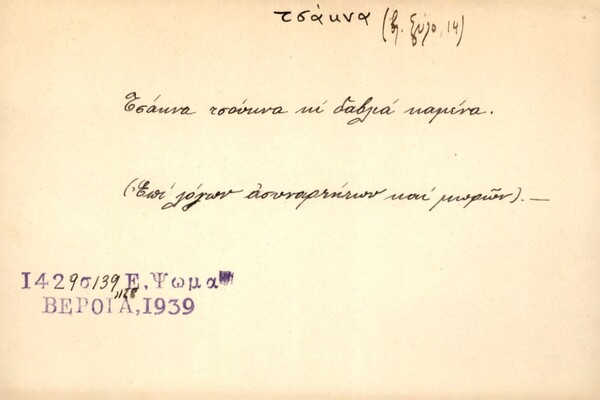 τσάκνα (βλ. ξύλο, 14)
Τσάκνα τσούκνα κὶ δαβλιά καμένα.
(Ἐπί λόγων ἀσυναρτήτων καί μωρῶν).—
1429σ139 Ε. Ψωμα
1128
ΒΕΡΟΙΑ, 1939